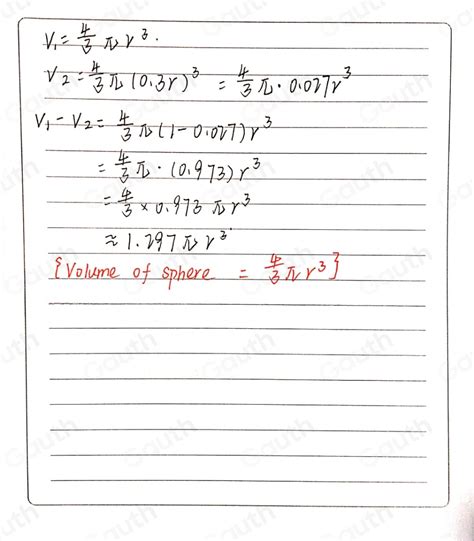 V₁ = 4/3 πr³.
V₂ = 4/3 π(0.3r)³ = 4/3 π · 0.027r³
V₁ - V₂ = 4/3 π(1-0.027)r³
= 4/3 π · (0.973) r³
= 4/3 × 0.973 πr³
≈ 1.297πr³
{Volume of sphere = 4/3 πr³}
Gauth